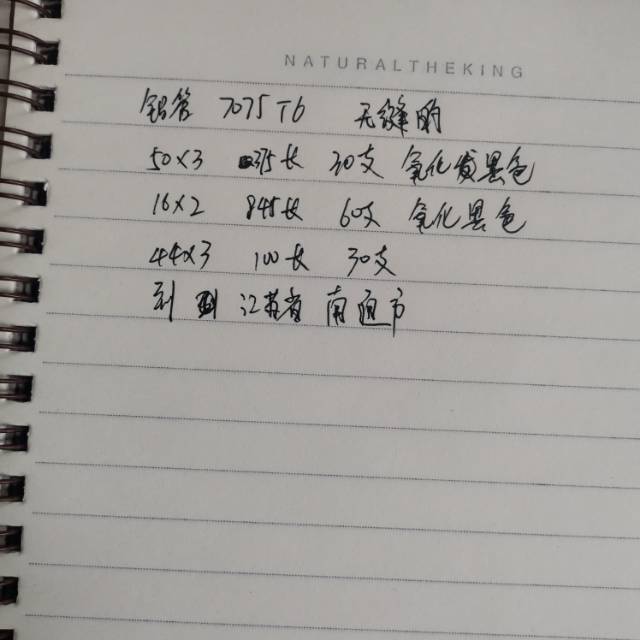 NATURALTHEKING
铝管 7075 T6 无缝的
50×3 375长 30支 氧化发黑色
16×2 845长 60支 氧化黑色
44×3 100长 30支
到 江苏省 南通市